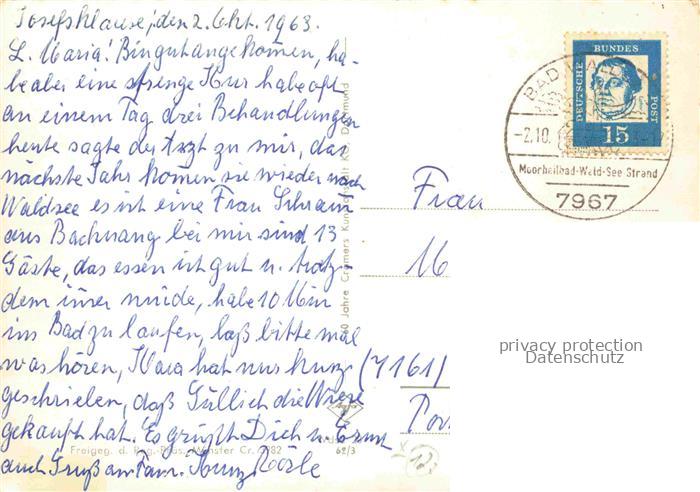 Josefsklause, den 2. Okt. 1963.
L. Maria! Bin gut angekomen, ha-
be aber eine strenge Kur habe oft
an einem Tag drei Behandlungen
heute sagte der Arzt zu mir, das
nächste Jahr komen sie wieder nach
Waldsee es ist eine Frau Schram
aus Backnang bei mir sind 13
Gäste, das essen ist gut u. trotz-
dem imer müde, habe 10 Min
ins Bad zu laufen, laß bitte mal
was hören, hat mir kurz
geschrieben, daß die Wiese
gekauft hat. Es grüßt Dich u.
auch Gruß an Fam.
Jahre Cramers Kunstanstalt KG Dortmund
Freigeg. d. Reg.-Präs. Münster Cr. 6982
62/3
Agfa
DEUTSCHE
BUNDES
POST
15
BAD WALDSEE
-2.10.
Moorheilbad-Wald-See Strand
7967
Frau
M
(7161)
privacy protection
Datenschutz